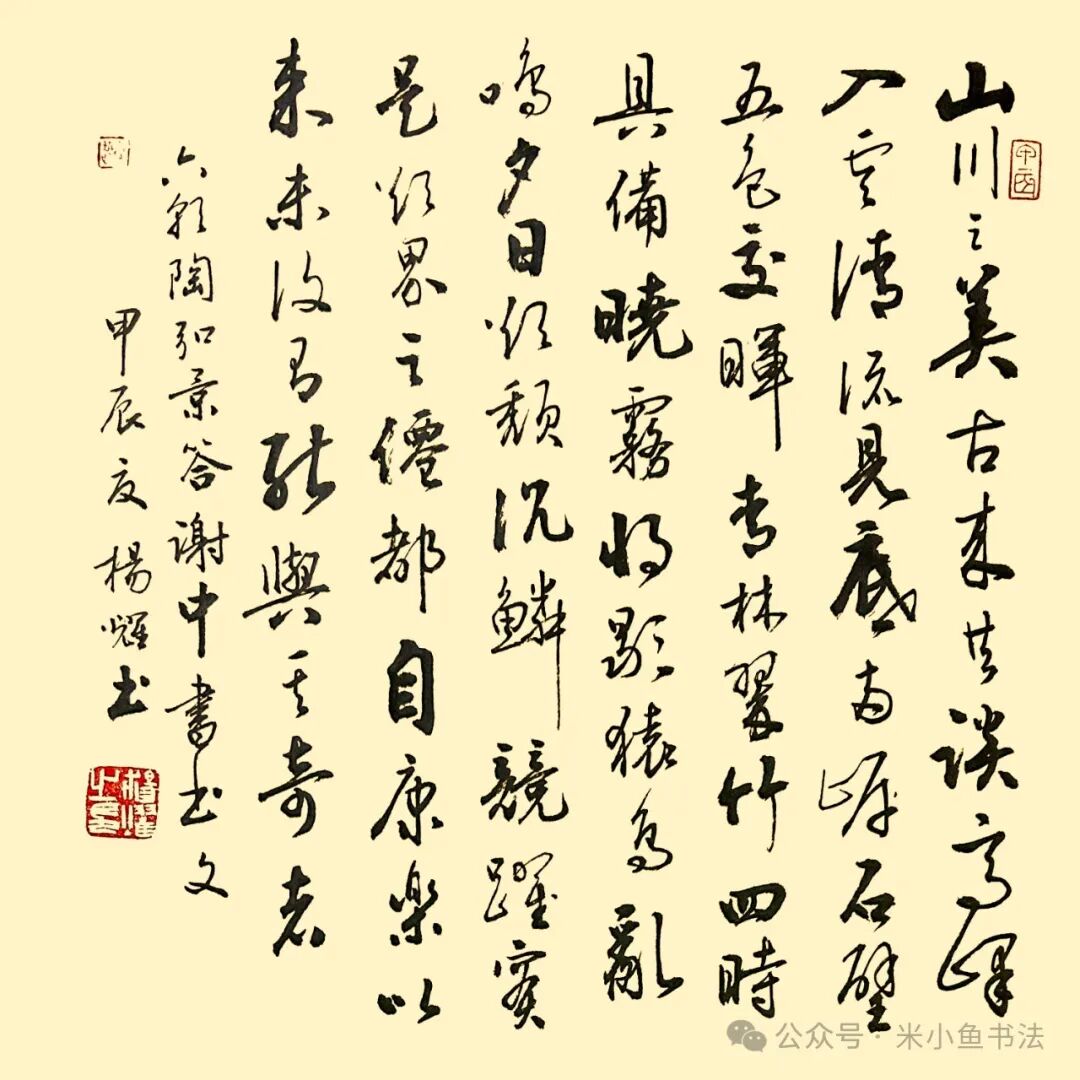 山川之美古來共談高峰
入雲清流見底兩岸石壁
五色交暉青林翠竹四時
具備曉霧將歇猿鳥亂
鳴夕日欲頹沉鱗競躍實
是欲界之僊都自康樂以
來未復有能與其奇者
六朝陶弘景答謝中書书文
甲辰夏楊耀书
楊耀之印
公众号·米小鱼书法